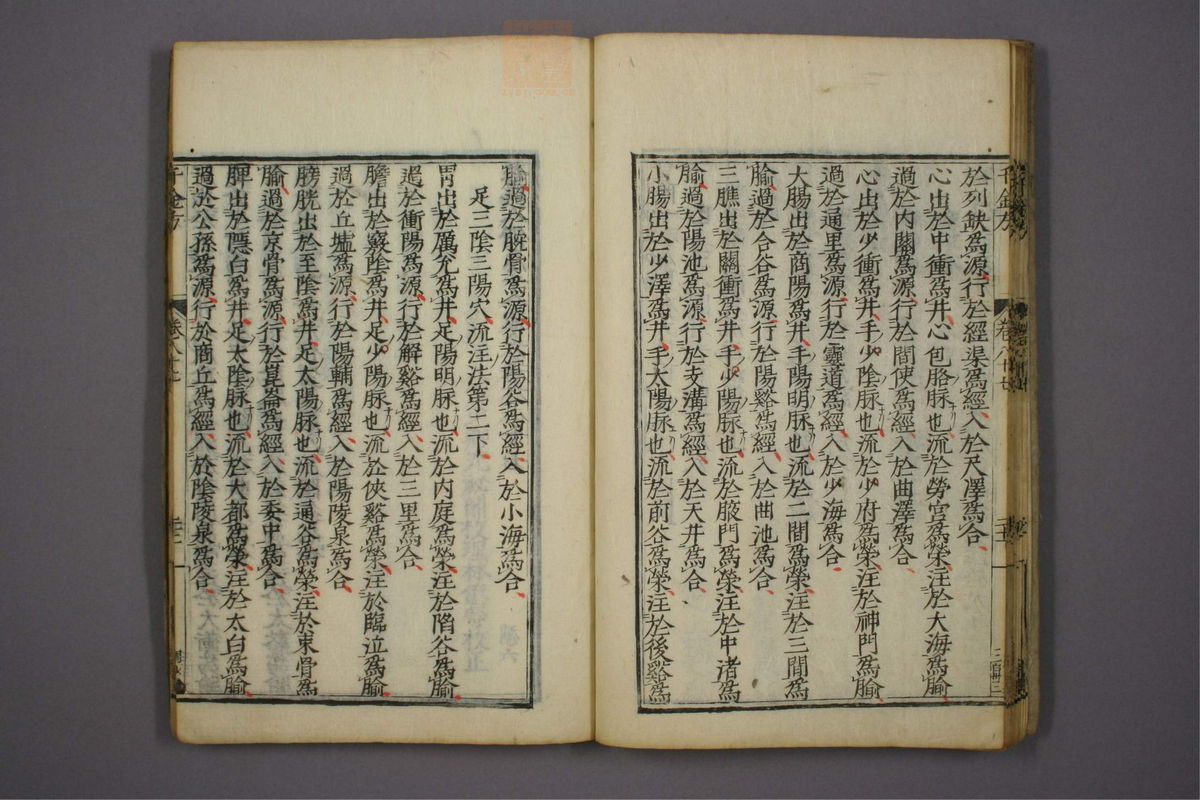 於列缺爲源行於經渠爲經入於尺澤爲合
心出於中衝爲井心包胳脉也流於勞宫爲滎注於大海爲腧
過於内關爲源行於間使爲經入於曲澤爲合
心出於少衝爲井手少陰脉也流於少府爲滎注於神門爲腧
過於通里爲源行於靈道爲經入於少海爲合
大腸出於商陽爲井手陽明脉也流於二間爲滎注於三間爲
腧過於合谷爲源行於陽谿爲經入於曲池爲合
三膲出於關衝爲井手少陽脉也流於腋門爲滎注於中渚爲
腧過於陽池爲源行於支溝爲經入於天井爲合
小腸出於少澤爲井手太陽脉也流於前谷爲滎注於後谿爲
腧過於腕骨爲源行於陽谷爲經入於小海爲合
足三陰三陽穴流注法第二下
胃出於厲兊爲井足陽明脉也流於内庭爲滎注於陷谷爲腧
過於衝陽爲源行於解谿爲經入於三里爲合
膽出於竅陰爲井足少陽脉也流於俠谿爲滎注於臨泣爲腧
過於丘墟爲源行於陽輔爲經入於陽陵泉爲合
膀胱出於至陰爲井足太陽脉也流於通谷爲滎注於束骨爲
腧過於京骨爲源行於崑崙爲經入於委中爲合
脾出於隱白爲井足太陰脉也流於大都爲滎注於太白爲腧
過於公孫爲源行於商丘爲經入於陰陵泉爲合
千金方